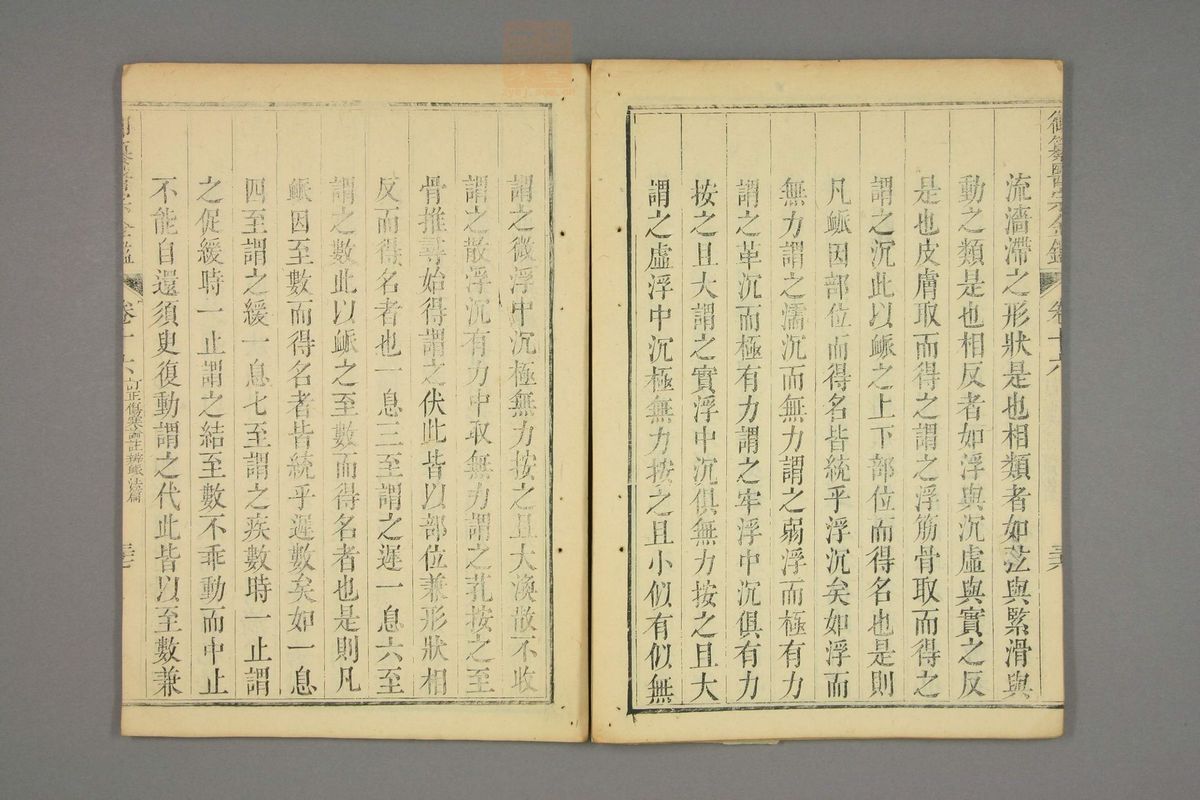 御纂醫宗金鑑 卷十六
流濇滯之形狀是也相類者如弦與緊滑與
動之類是也相反者如浮與沉虛與實之反
是也皮膚取而得之謂之浮筋骨取而得之
謂之沉此以䘑之上下部位而得名也是則
凡䘑因部位而得名皆統乎浮沉矣如浮而
無力謂之濡沉而無力謂之弱浮而極有力
謂之革沉而極有力謂之牢浮中沉俱有力
按之且大謂之實浮中沉俱無力按之且大
謂之虛浮中沉極無力按之且小似有似無
謂之微浮中沉極無力按之且大渙散不收
謂之散浮沉有力中取無力謂之芤按之至
骨推尋始得謂之伏此皆以部位兼形狀相
反而得名者也一息三至謂之遲一息六至
謂之數此以䘑之至數而得名者也是則凡
䘑因至數而得名者皆統乎遲數矣如一息
四至謂之緩一息七至謂之疾數時一止謂
之促緩時一止謂之結至數不乖動而中止
不能自還須臾復動謂之代此皆以至數兼
醫宗金鑑 卷十六 訂正傷寒論註辨䘑法篇